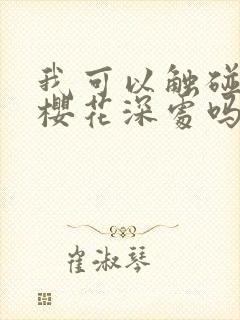 我可以触碰
樱花深处吗
崔淑琴